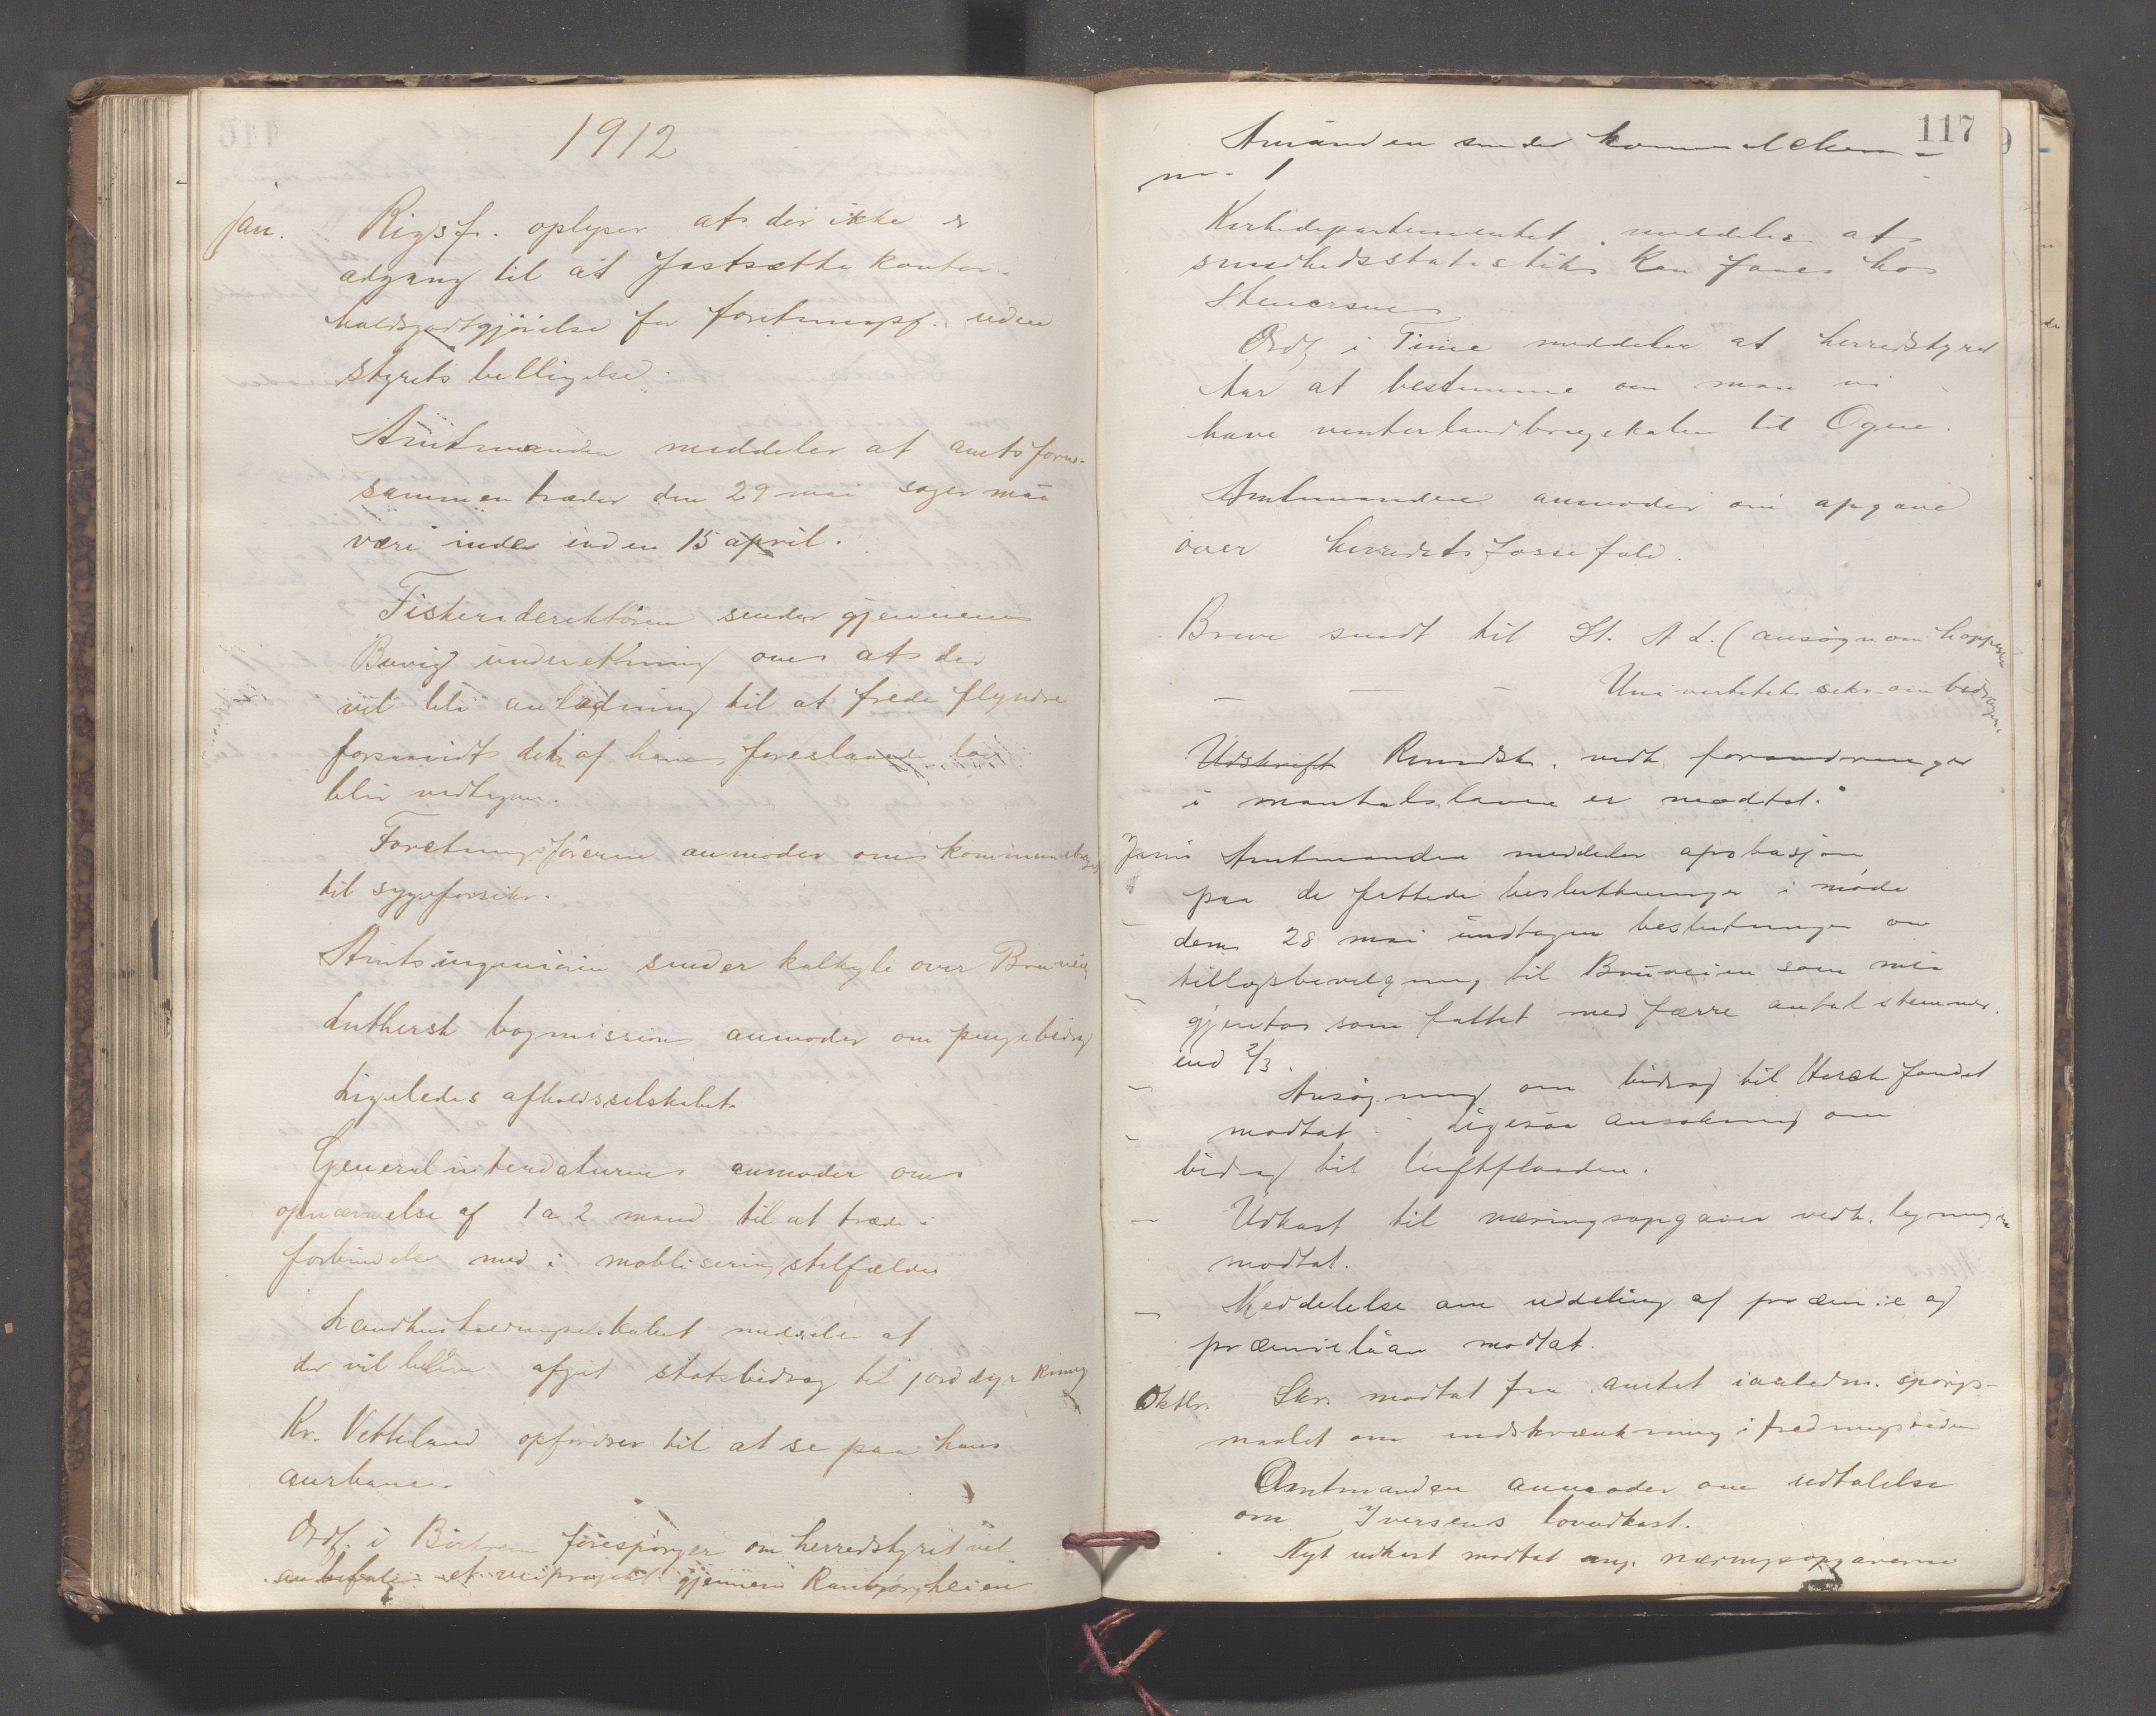 1912
Jan. Rigsf. oplyser at der ikke er
adgang til at fastsætte kontor-
holdsgodtgjörelse for foretningsf. uden
styrets billigelse.
Amtmanden meddeler at amtsform.
sammentræder den 29 mai sager maa
være inde inden 15 april.
Fiskeridirektören sender gjennem
Buvig underetning om at der
vil bli anledning til at frede flyndre
forsaavidt det af ham foreslaaede lov
blir vedtagen.
Foretningsföreren anmoder om kommunebidrag
til sygeforsikr.
Amtsingeniören sender kalkyle over Bruveien
Luthersk bogmission anmoder om pengebidrag
Ligeledes afholdsselskabet
Generalintendaturen anmoder om
opnævnelse af 1 a 2 mand til at træde i
forbindelse med i mobliseringstilfælde
Landhusholdningselskabet meddeler at
der vil bliva afgit statsbidrag til jorddyrkning
Kr. Vetteland opfordrer til at se paa hans
aurbane.
Ordf. i Birkrem forespörger om herredstyret vil
anbefale et veiprojekt gjennem
117
Amtmanden sender
nr. 1
Kirkedepartementet meddeler at
sundhedsstatistik kan faaes hos
Stenersen
Ordf i Time meddeler at herredstyret
har at bestemme om man vil
have vinterlandbrugskolen til Ogne.
Amtmanden anmoder om opgave
over herredets fossefald.
Breve sendt til St. A d. (ansögn om
— — — Universitetets sekr. om bidragen.
Udskrift Rundsk. vedk. forandringer
i mantalslovene er modtat.
Juni Amtmanden meddeler aprobasjon
paa de fattede beslutninger i möde
den 28 mai undtagen beslutningen om
tillægsbevilgning til Bruveien som maa
gjentas som fattet med færre antal stemmer
end 2/3.
Ansögning om bidrag til fondet
modtat. Ligesaa ansökning om
bidrag til luftflaaden.
Udkast til næringsopgaver vedk. ligningen
modtat.
Meddelelse om uddeling af præmie og
præmielaan modtat.
Oktbr. Skr. modtat fra amtet ianledn. spörgs-
maalet om indskrænkning i fredningstiden
Amtmanden anmoder om udtalelse
om Iversens lovudkast.
Nyt udkast modtat ang. næringsopgaverne